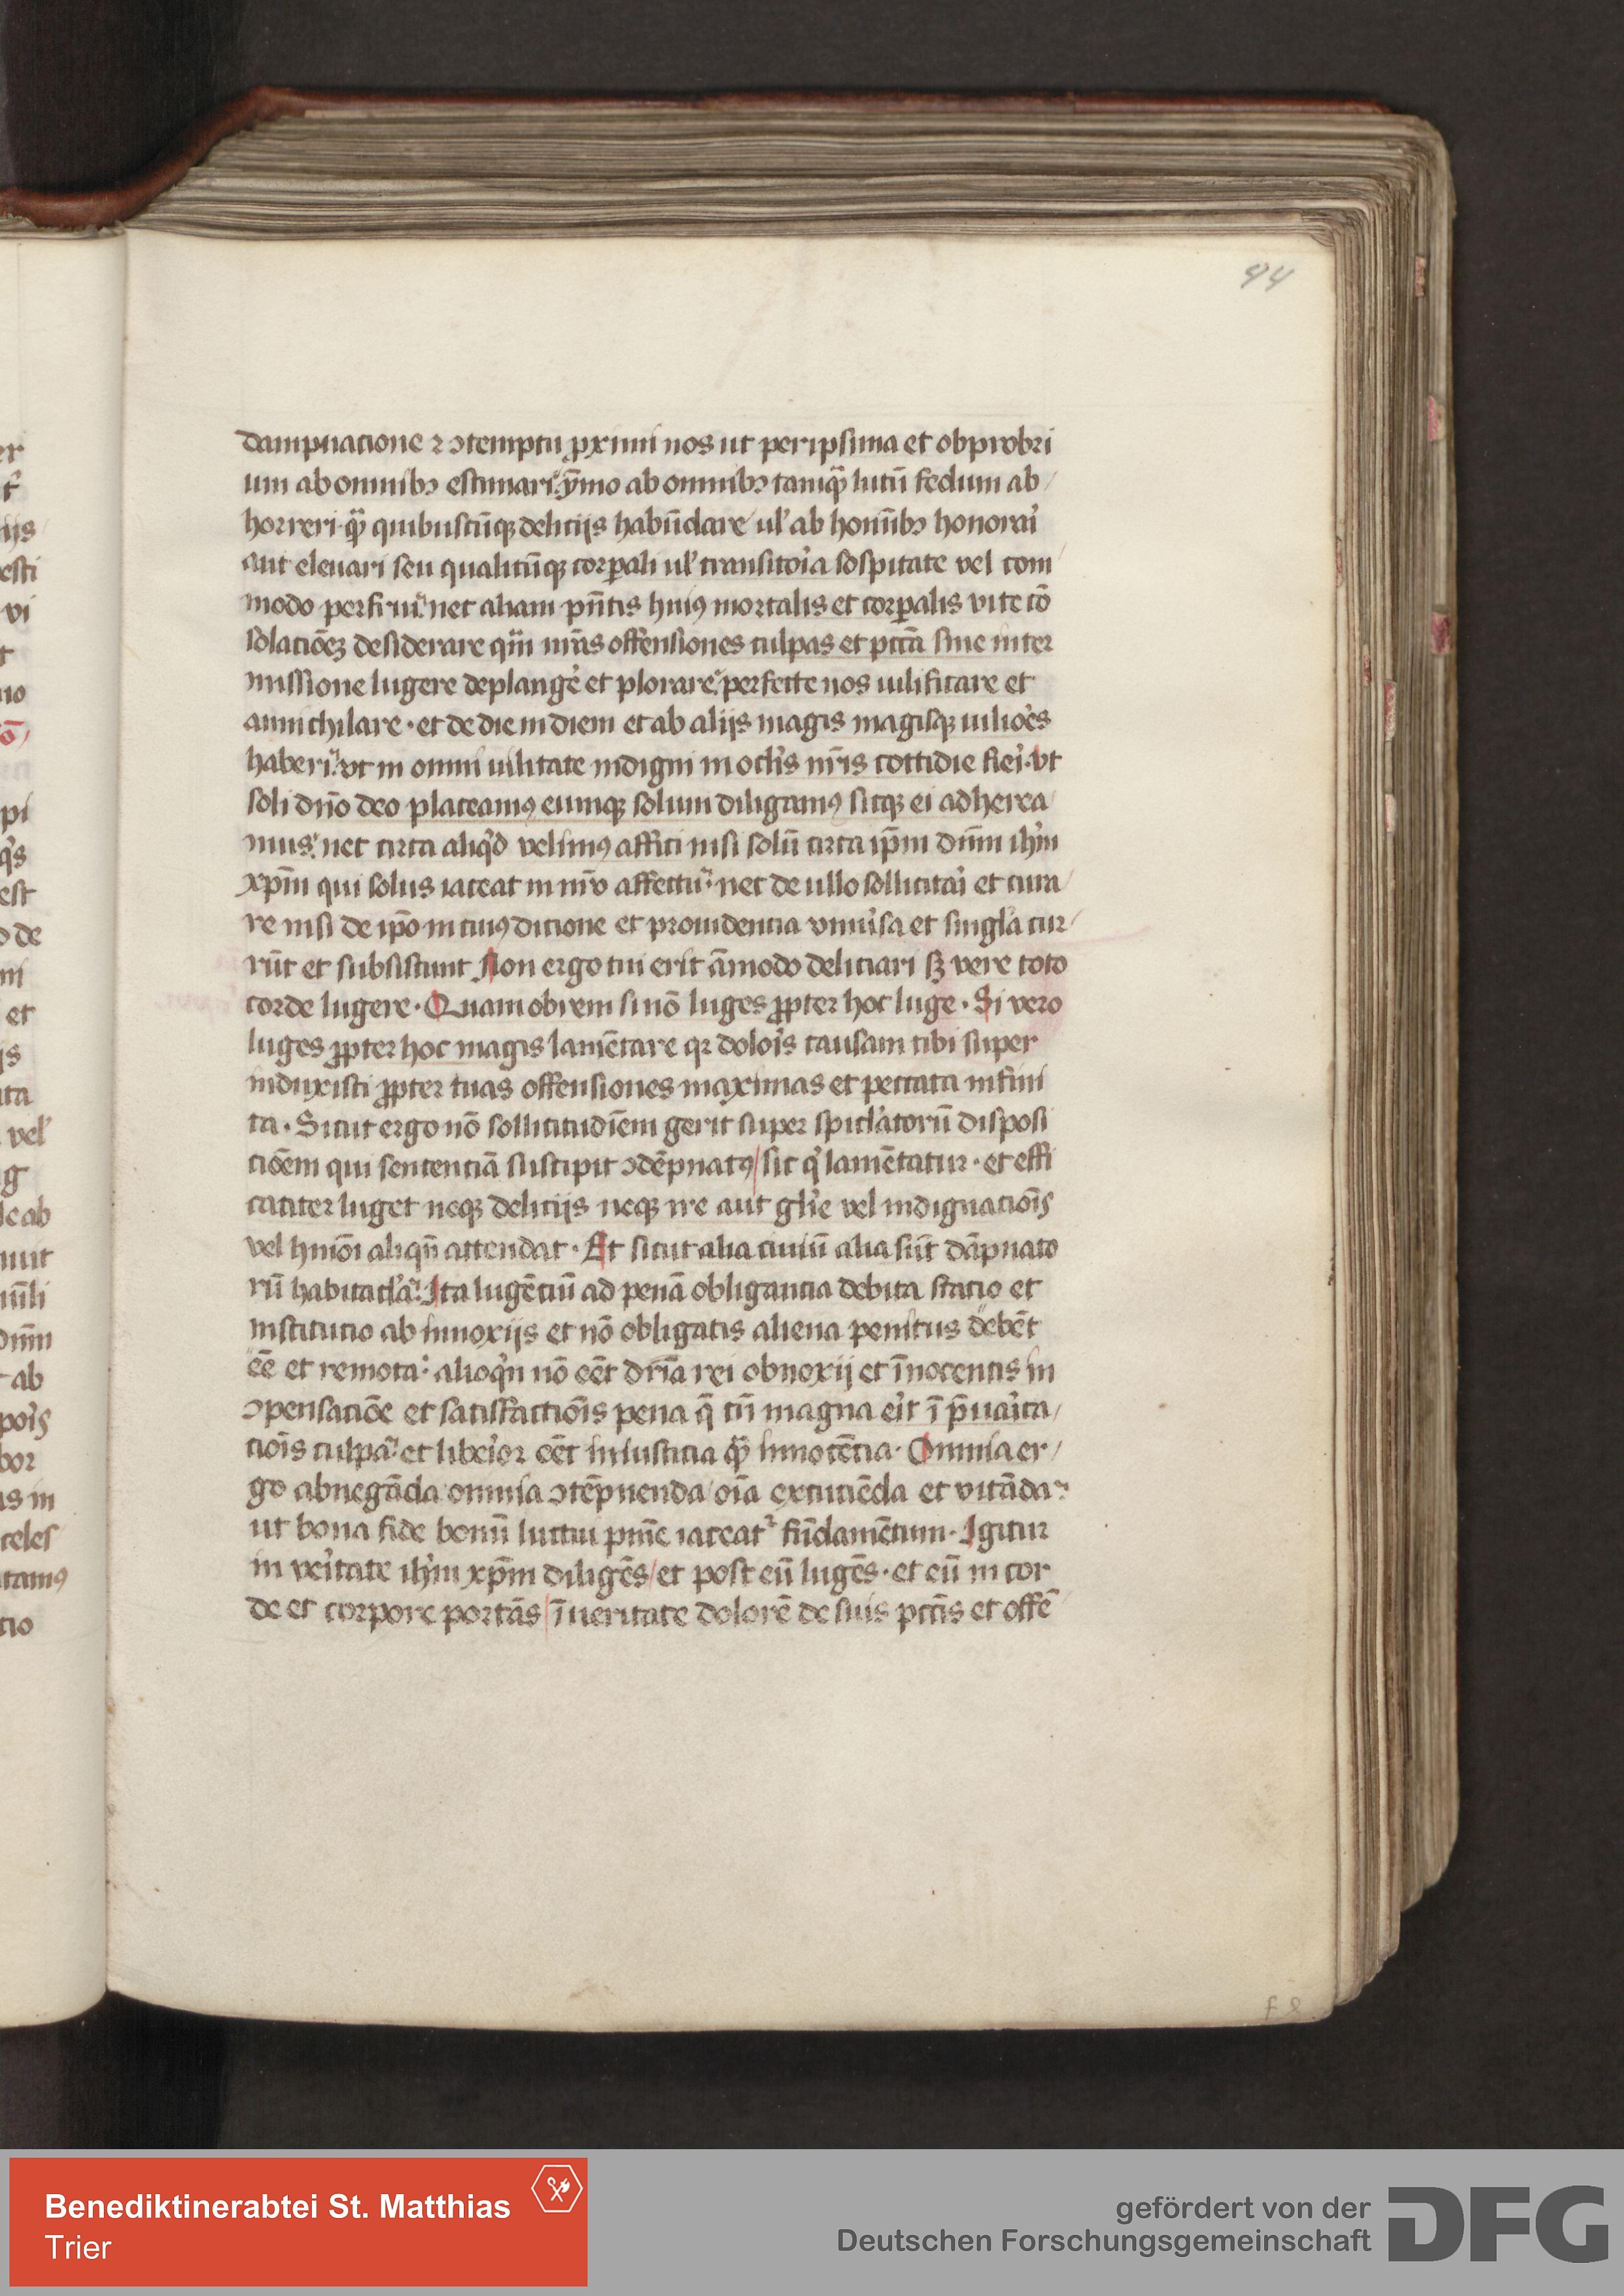 44
dampnacione ⁊ ↄtemptu ꝓximi nos ut peripsima et obprobri
um ab omnibꝫ estimari ymo ab omnibꝫ tamqᷓ lutū fedum ab/
horreri qᷓ quibuscūqꝫ delicijs habūdare ul' ab hominibꝫ honorari
aut eleuari seu qualicūqꝫ corꝑali ul' transitoria sospitate vel com/
modo perfrui nec aliam pn̄tis huiꝰ mortalis et corꝑalis vite cō
solacōeꝫ desiderare qᷓm nrās offensiones culpas et pctā sine inter
missione lugere deplangere et plorare perfecte nos uilificare et
annichilare · et de die in diem et ab alijs magis magisqꝫ uiliores
haberi ut in omni uilitate indigni in oclis nrīs cottidie fieri · vt
soli dn̄o deo placeamꝰ eumqꝫ solum diligamꝰ sicqꝫ ei adherea/
mus nec circa aliqd velimꝰ affici nisi solū circa ip̄m dn̄m ihm
xp̄m qui solus iaceat in nrō affectu nec de ullo sollicitari et cura/
re nisi de ip̄o in cuiꝰ dicione et prouidencia vniuersa et singla cur/
rūt et subsistunt Non ergo tui erit āmodo deliciari sꝫ vere toto
corde lugere · Quamobrem si nō luges ꝓpter hoc luge · Si vero
luges ꝓpter hoc magis lamētare qꝛ doloris causam tibi super
induxisti ꝓpter tuas offensiones maximas et peccata infini
ta · Sicut ergo nō sollicitudīem gerit super spiclatorū disposi
cōem qui sentenciā suscipit ↄdēpnatꝰ/ sic q' lamētatur · et effi
caciter luget neqꝫ delicijs neqꝫ ire aut glīe vel indignacōis
vel hmōi aliqn̄ attendat · Et sicut alia ciuiū alia sūt dāpnato
rū habitacla Ita lugēciū ad penā obligancia debita stacio et
institucio ab innoxijs et nō obligatis aliena penitus debēt
ēē et remota alioqn nō eēt drīa rei obnoxij et īnocentis in
ↄpensacōe et satisfactiōis pena q̄ cū magna erit ī p̄uarica/
ciōis culpa et liberior eēt iniusticia qᷓ innocēcia · Omnia er/
go abnegāda omnia ↄtēpnenda/ oīa excuciēda et vitāda
ut bona fide bonū luctui pmē iaceatᷣ fūdamētum · Igitur
in veritate ihm xp̄m diligēs/ et post eū lugēs · et eū in cor
de et corpore portās/ ī ueritate dolorē de suis pctīs et offē
f 8
Benediktinerabtei St. Matthias
Trier
gefördert von der
Deutschen Forschungsgemeinschaft
DFG